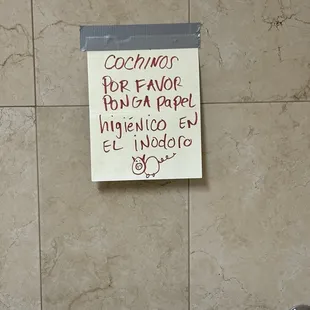 COCHINOS
POR FAVOR
PONGA PAPEL
higiÉNICO EN
EL iNOdORO